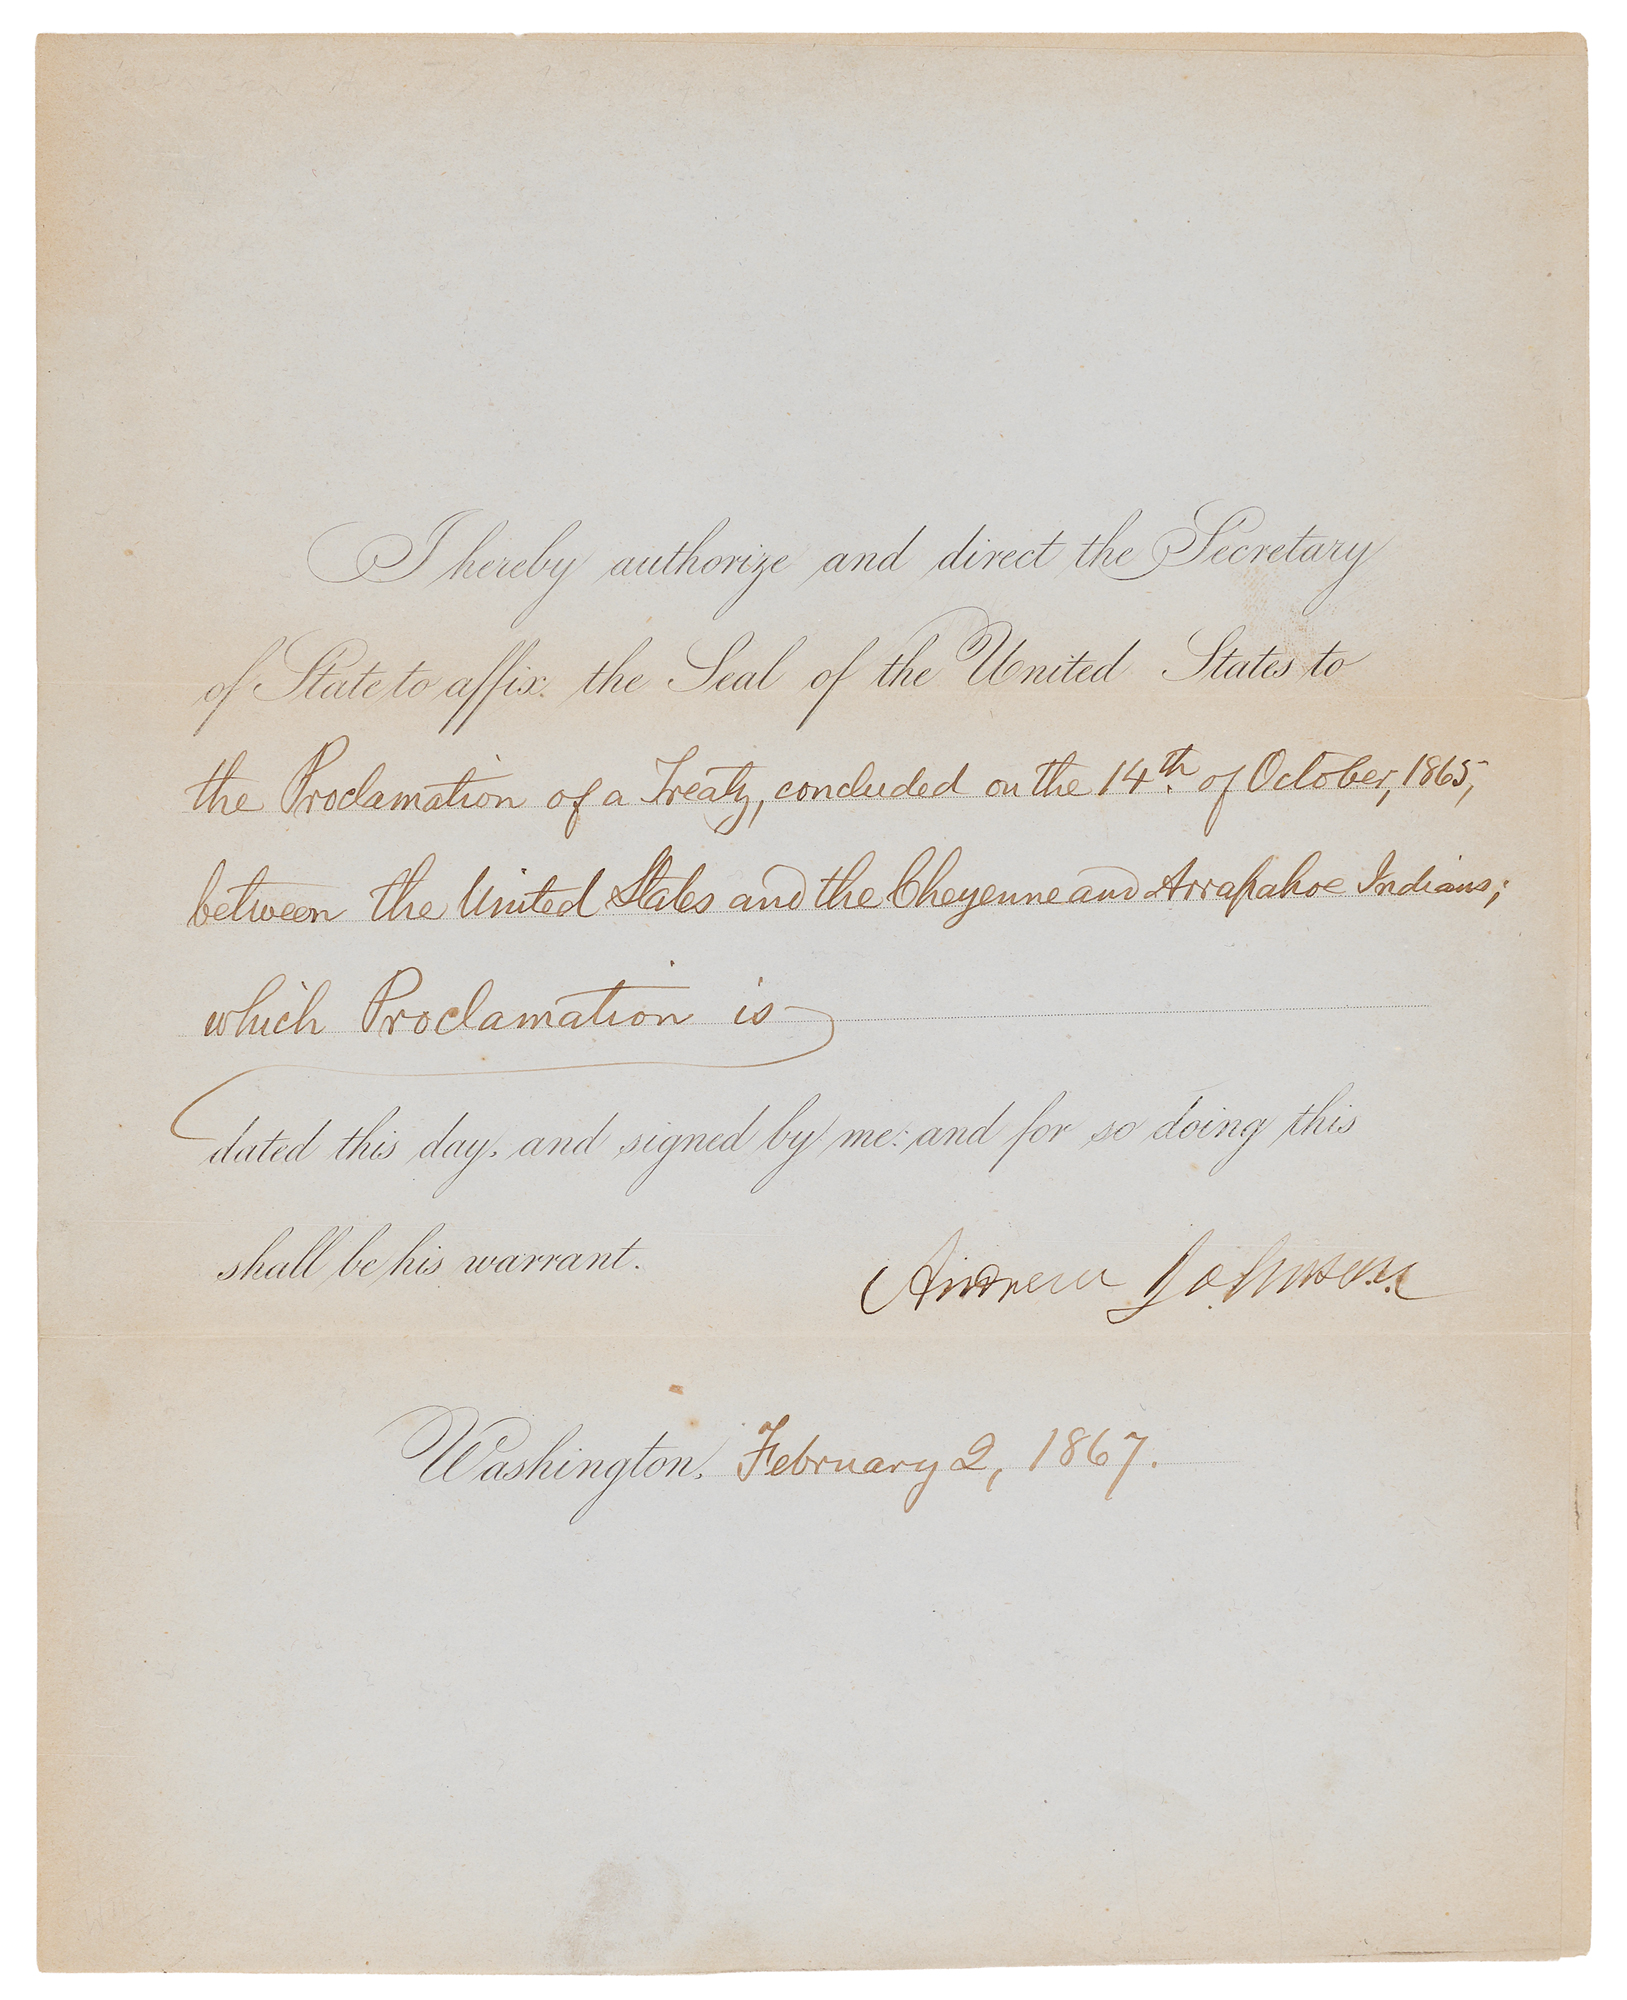 I hereby authorize and direct the Secretary
of State to affix the Seal of the United States to
the Proclamation of a Treaty, concluded on the 14th. of October, 1865,
between the United States and the Cheyenne and Arrapahoe Indians;
which Proclamation is
dated this day, and signed by me: and for so doing this
shall be his warrant.
Andrew Johnson
Washington, February 2, 1867.